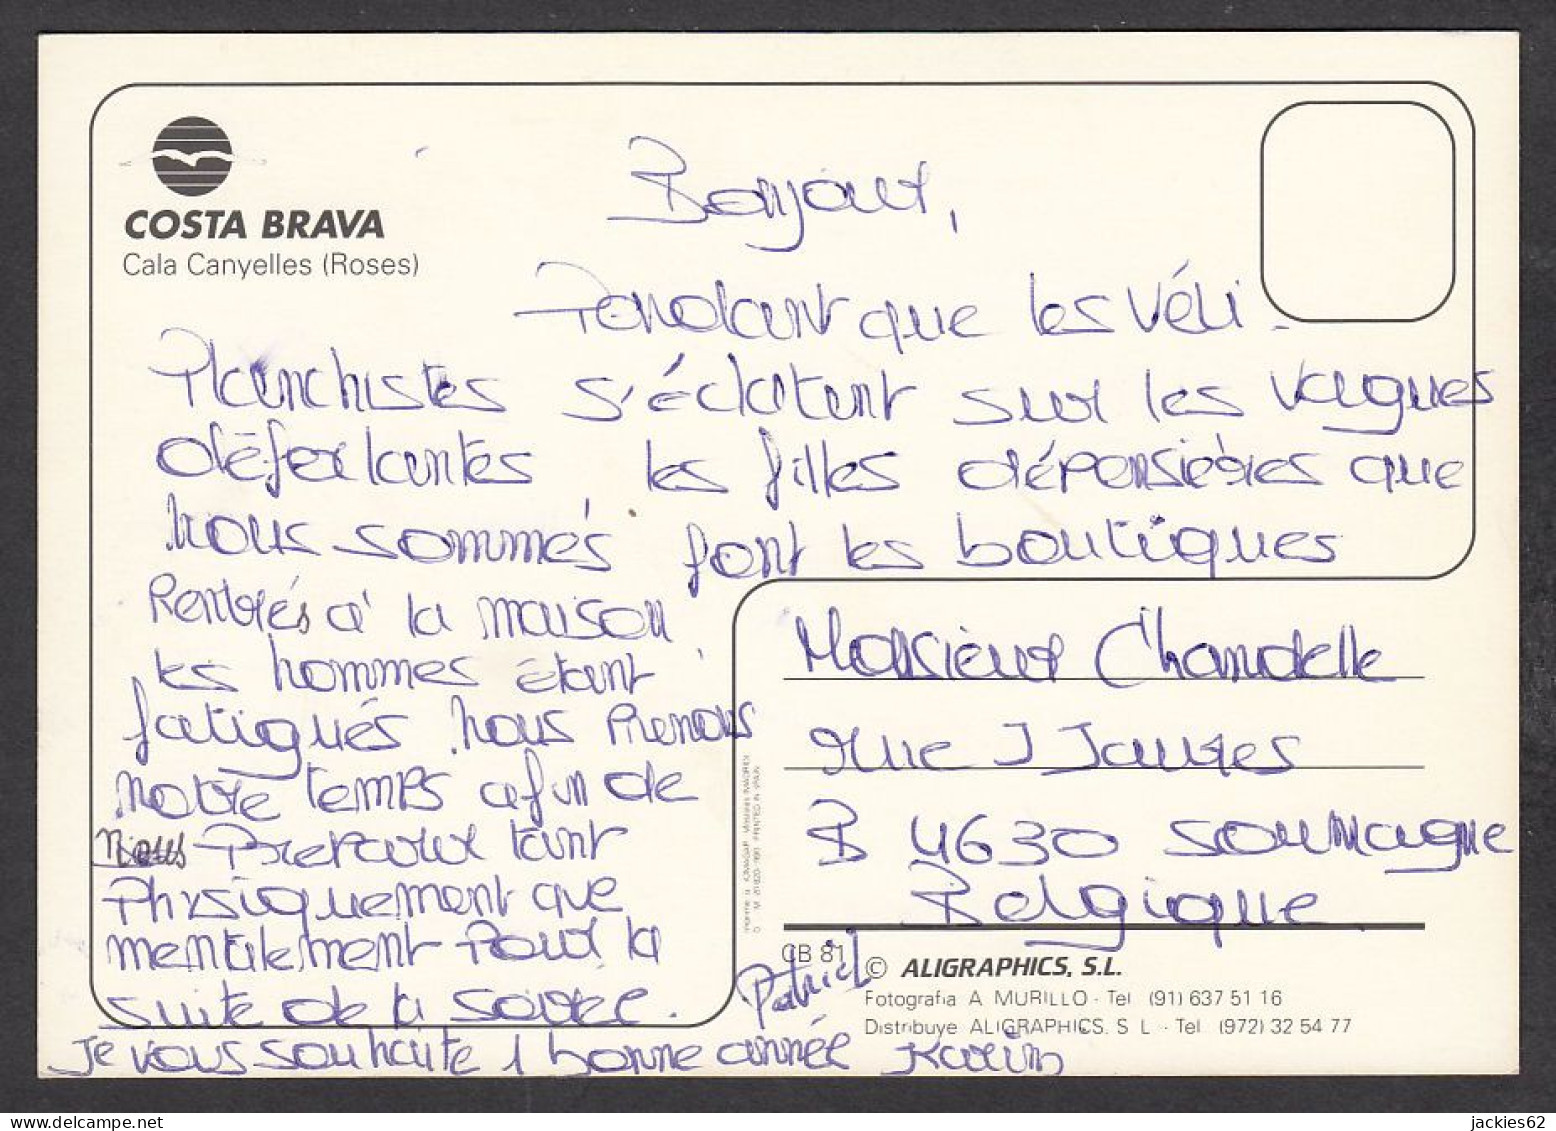 COSTA BRAVA
Cala Canyelles (Roses)
Bonjour,
Pendant que les véli-
Planchistes s'éclatent sur les vagues
déferlantes les filles dépensières que
nous sommes font les boutiques
Rentrés à la maison
les hommes étant
fatigués nous Prenons
notre temps afin de
nous Preparer tant
Physiquement que
mentalement Pour la
suite de la soirée.
Je vous souhaite 1 bonne année Karin
Patrick
Monsieur Chandelle
rue J Jaures
B 4630 Soumagne
Belgique
CB 81
© ALIGRAPHICS, S.L.
Fotografia A. MURILLO - Tel. (91) 637 51 16
Distribuye ALIGRAPHICS, S. L. - Tel. (972) 32 54 77
PRINTED IN SPAIN
jackies62